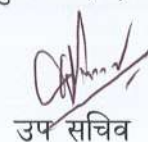 उप सचिव